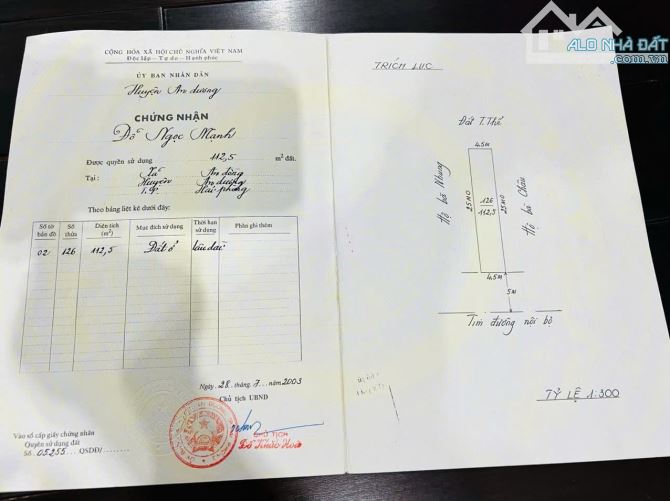 CỘNG HÒA XÃ HỘI CHỦ NGHĨA VIỆT NAM
Độc lập - Tự do - Hạnh phúc
ỦY BAN NHÂN DÂN
Huyện An dương
CHỨNG NHẬN
Đỗ Ngọc Mạnh
Được quyền sử dụng 112,5 m² đất.
Tại : Xã An đồng
Huyện An dương
T.P Hải phòng
Theo bảng liệt kê dưới đây:
Số tờ bản đồ Số thửa Diện tích (m²) Mục đích sử dụng Thời hạn sử dụng Phần ghi thêm
02 126 112,5 Đất ở Lâu dài
Ngày 28 tháng 7 năm 2003
Chủ tịch UBND
CHỦ TỊCH
Vào sổ cấp giấy chứng nhân
Quyền sử dụng đất
Số 05255 QSDĐ/
ALO NHÀ ĐẤT
.com.vn
TRÍCH LỤC
Đất T.Thế
4.5M
Hộ bà Nhung
25M0
126
112,5
25M0
Hộ bà Châu
4,5M
5M
Tim đường nội bộ
TỶ LỆ 1:300